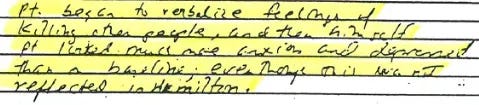 pt. began to verbalize feelings of
killing other people, and then himself
pt looked much more anxious and depressed
than @ baseline; even though this was not
reflected in Hamilton.